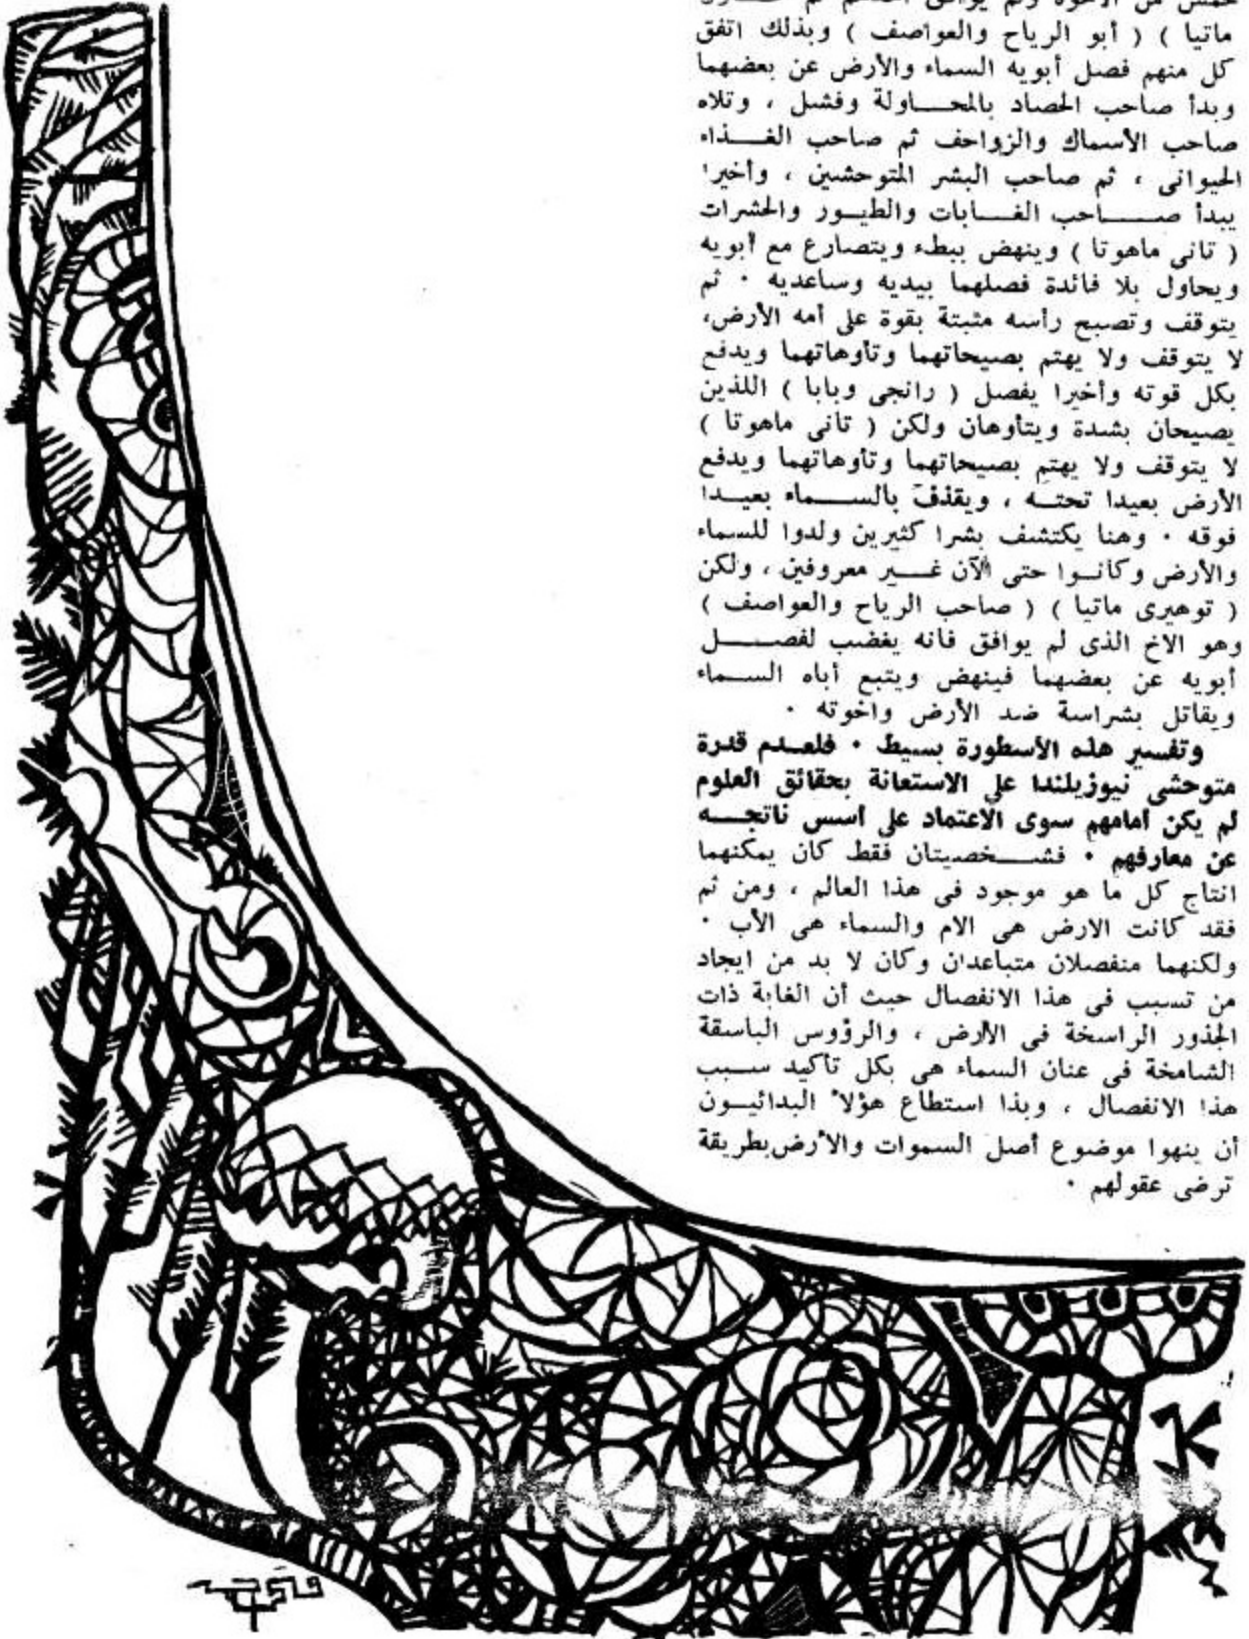 خمس من الاخوة ولم يوافق
ماتيا ) ( أبو الرياح والعواصف ) وبذلك اتفق
كل منهم فصل أبويه السماء والأرض عن بعضهما
وبدأ صاحب الحصاد بالمحاولة وفشل ، وتلاه
صاحب الأسماك والزواحف ثم صاحب الغذاء
الحيوانى ، ثم صاحب البشر المتوحشين ، وأخيرا
يبدأ صاحب الغابات والطيور والحشرات
( تانى ماهوتا ) وينهض ببطء ويتصارع مع أبويه
ويحاول بلا فائدة فصلهما بيديه وساعديه · ثم
يتوقف وتصبح رأسه مثبتة بقوة على أمه الأرض،
لا يتوقف ولا يهتم بصيحاتهما وتأوهاتهما ويدفع
بكل قوته وأخيرا يفصل ( رانجى وبابا ) اللذين
يصيحان بشدة ويتأوهان ولكن ( تانى ماهوتا )
لا يتوقف ولا يهتم بصيحاتهما وتأوهاتهما ويدفع
الأرض بعيدا تحته ، ويقذف بالسماء بعيدا
فوقه · وهنا يكتشف بشرا كثيرين ولدوا للسماء
والأرض وكانوا حتى الآن غير معروفين ، ولكن
( توهيرى ماتيا ) ( صاحب الرياح والعواصف )
وهو الاخ الذى لم يوافق فانه يغضب لفصل
أبويه عن بعضهما فينهض ويتبع أباه السماء
ويقاتل بشراسة ضد الأرض واخوته ·
وتفسير هذه الأسطورة بسيط · فلعدم قدرة
متوحشى نيوزيلندا على الاستعانة بحقائق العلوم
لم يكن أمامهم سوى الاعتماد على أسس ناتجه
عن معارفهم · فشخصيتان فقط كان يمكنهما
انتاج كل ما هو موجود فى هذا العالم ، ومن ثم
فقد كانت الارض هى الام والسماء هى الأب ·
ولكنهما منفصلان متباعدان وكان لا بد من ايجاد
من تسبب فى هذا الانفصال حيث أن الغابة ذات
الجذور الراسخة فى الأرض ، والرؤوس الباسقة
الشامخة فى عنان السماء هى بكل تأكيد سبب
هذا الانفصال ، وبذا استطاع هؤلاء البدائيون
أن ينهوا موضوع أصل السموات والأرض بطريقة
ترضى عقولهم ·